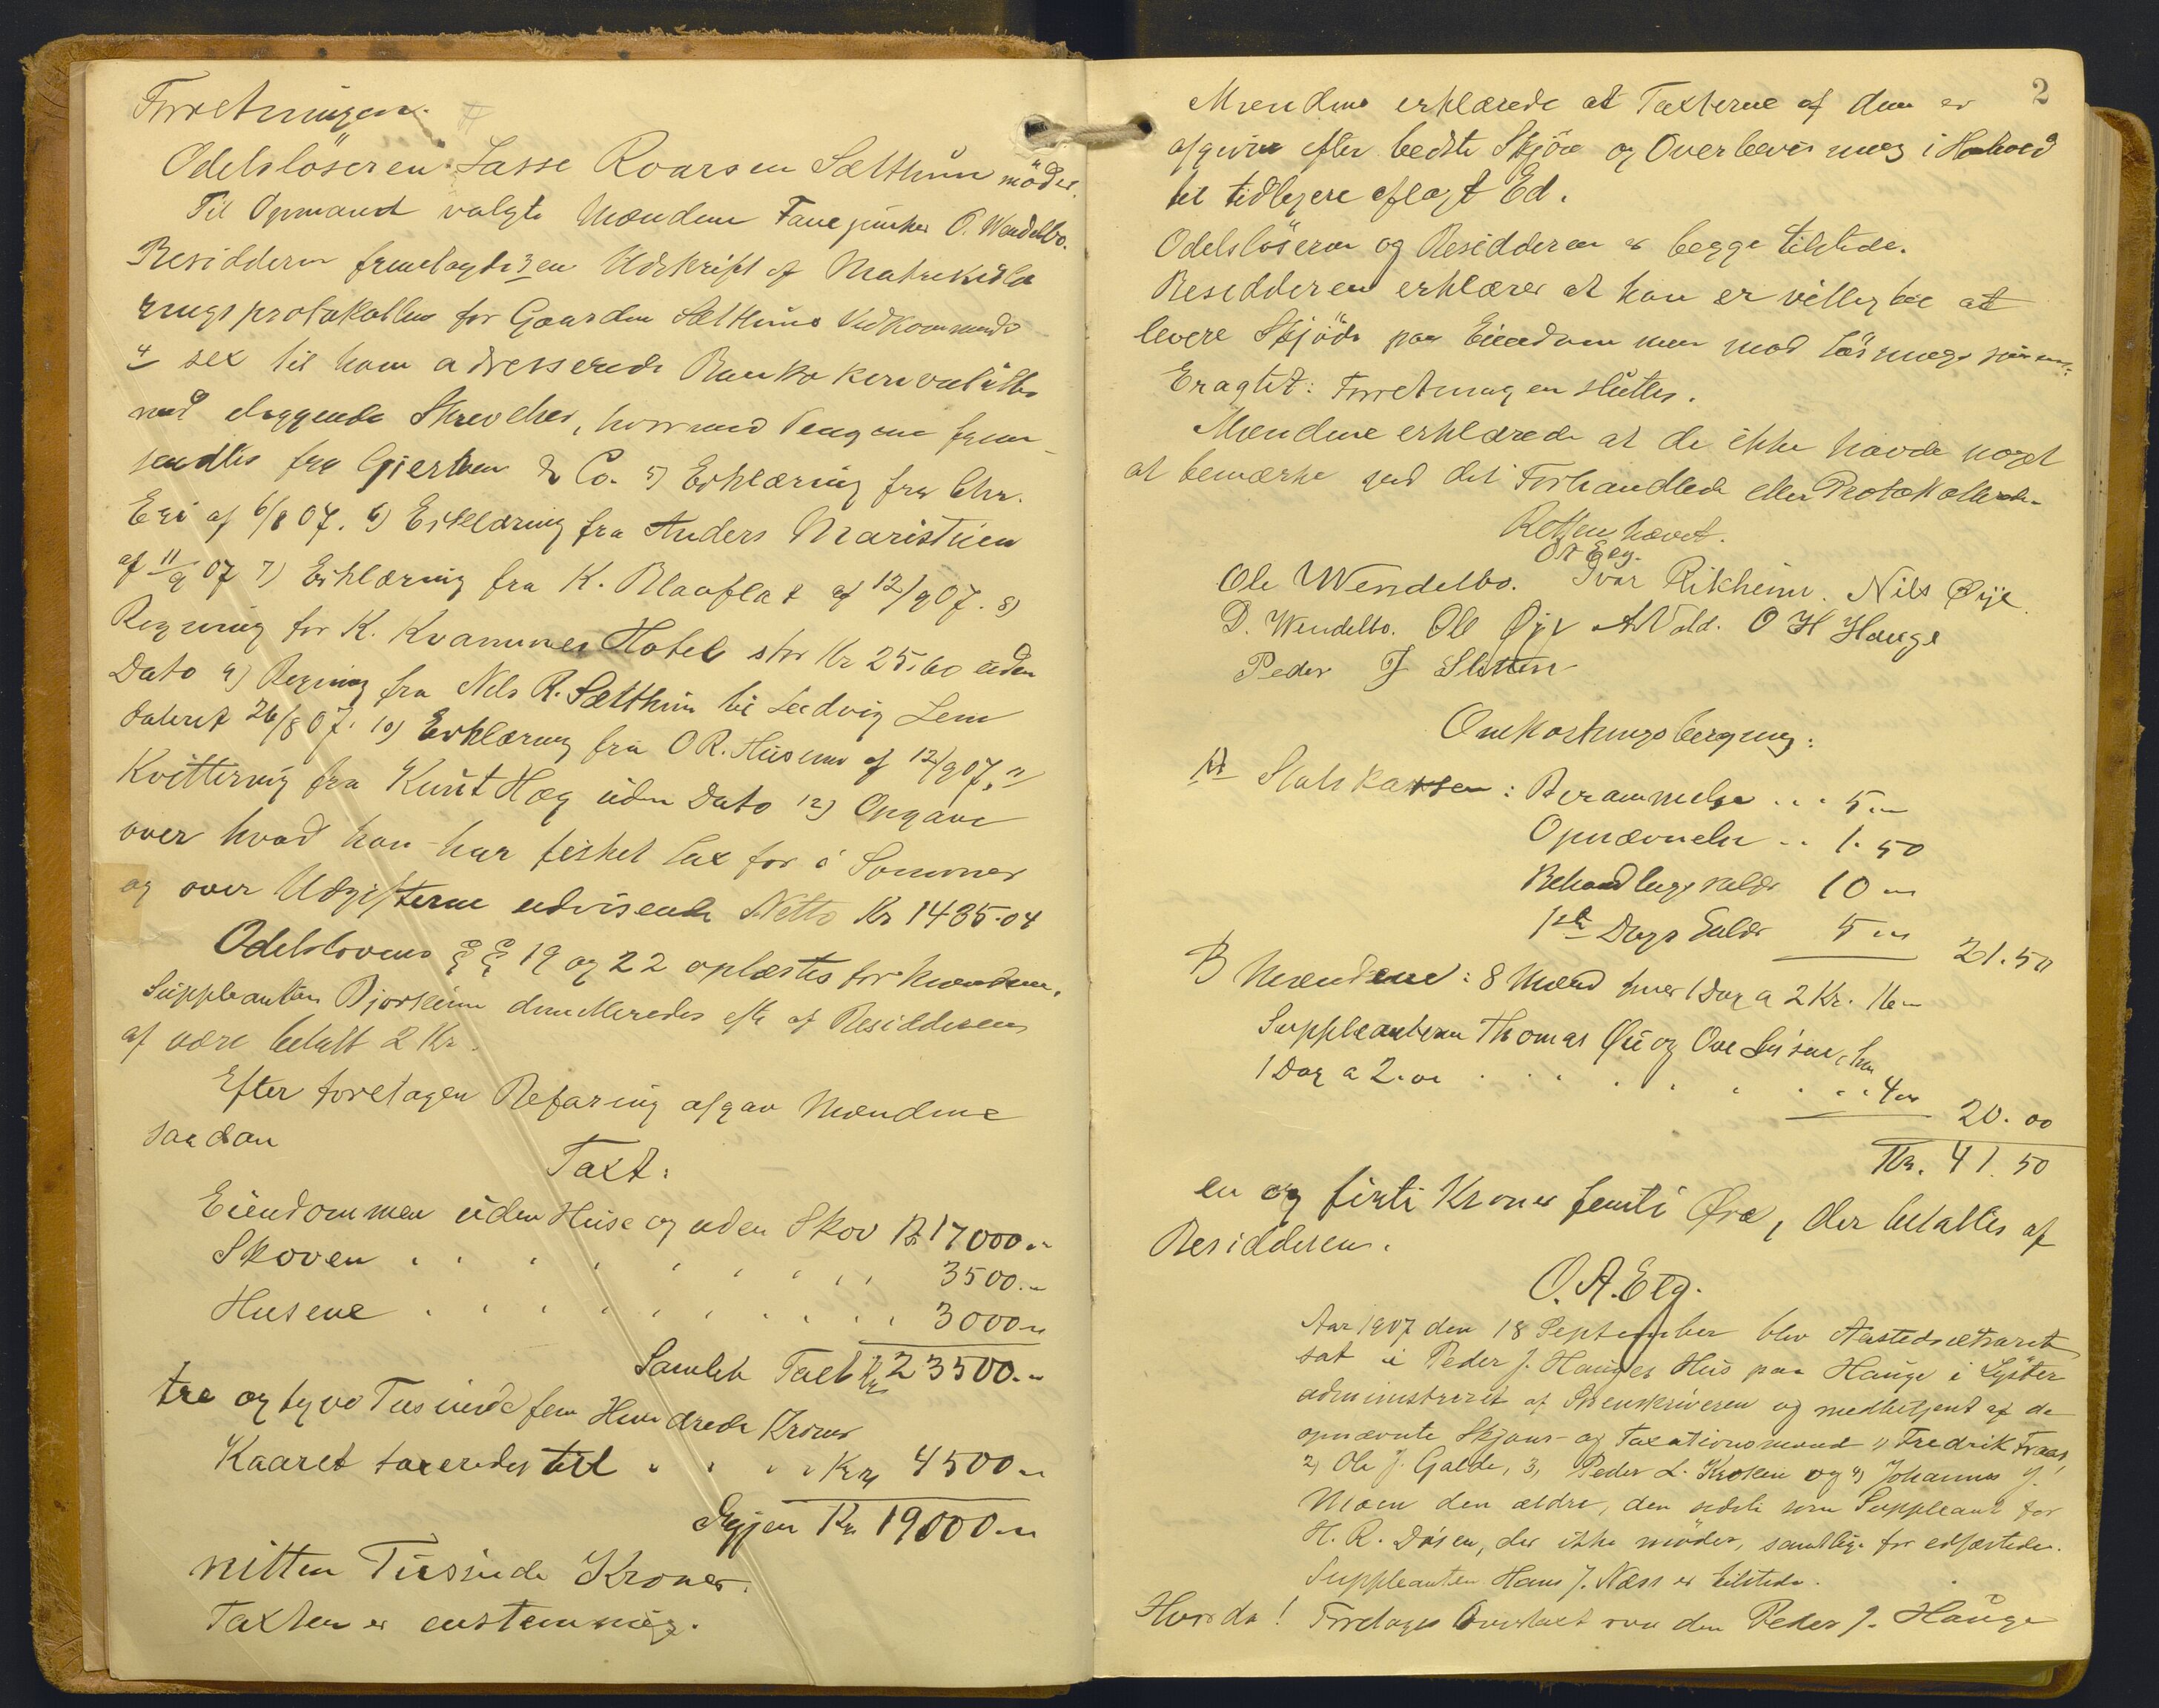 Forretningen.
Odelsløseren Lasse Roarsen Sælthun møder.
Til Opmand valgte Mændene Fanejunker O. Wendelbo.
Besidderen fremlagde 3 en Udskrift af Matrikule-
ringsprotokollen for Gaarden Sælthuns Vedkommende
4 sex til ham adresserede Bankokonvolutter
med Skrivelser, hvormed Pengene frem-
sendtes fra Giertsen & Co. 5) Erklæring fra Chr.
Eri af 6/8 07. 6) Erklæring fra Anders Maristuen
af 11/9 07 7) Erklæring fra K. Blaaflat af 12/9 07. 8)
Regning for K. Kvammes Hotel stor Kr 25.60 uden
Dato 9) Regning fra Nils R. Sælthun til Ludvig Lem
dateret 26/8 07. 10) Erklæring fra O R. Husum af 12/9 07. 11
Kvittering fra Knut Hæg uden Dato 12) Opgave
over hvad han har fisket Lax for i Sommer
og over Udgifterne udvisende Netto Kr 1435.04
Odelslovens §§ 19 og 22 oplæstes for Mændene.
Suppleanten Bjørkum dimitteredes efter af Besidderen
at være betalt 2 Kr.
Efter foretagen Befaring afgav Mændene
saadan
Taxt:
Eiendommen uden Huse og uden Skov Kr 17000.-
Skoven . . . . . . . . 3500.-
Husene . . . . . . . . . 3000-
Samlet Taxt Kr 23500.-
tre og tyve Tusinde fem Hundrede Kroner
Kaaret taxeredes til . . . . Kr 4500-
Igjen Kr 19000.-
nitten Tusinde Kroner.
Taxten er enstemmig.
2
Mændene erklærede at Taxterne af dem er
afgivne efter bedste Skjøn og Overbevisning i Henhold
til tidligere aflagt Ed.
Odelsløseren og Besidderen er begge tilstede.
Besidderen erklærer at han er villig til at
levere Skjøde paa Eiendommen mod Løsnings
Eragtet: Forretningen sluttes.
Mændene erklærede at de ikke havde noget
at bemærke ved det Forhandlede eller Protokollerede
Retten hævet.
O A Elg.
Ole Wendelbo. Ivar Rikheim. Nils Øye.
D. Wendelbo. Ole Øye A Vold. O H Hauge
Peder J Sletten
Omkostningsberegning:
A Statskassen: Berammelse . . . 5.-
Opnævnelse .. 1.50
Behandlingsgebyr 10 -
1ste Dags 5 -
21.50
B Mændene: 8 Mænd hver 1 Dag a 2 Kr. 16 -
Suppleanterne Thomas Øie og Ove
1 Dag a 2.00 . . . . . . . . 4 -
20.00
Kr. 41.50
en og firti Kroner femti Øre, der betaltes af
Besidderen.
O. A. Elg.
Aar 1907 den 18 September blev Aastedsretten
sat i Peder J. Hauges Hus paa Hauge i Lyster
administreret af Sorenskriveren og medbetjent af de
opnævnte Skjøns- og Taxationsmænd 1) Fredrik
2) Ole J. Galde, 3, Peder L. Kroken og 4) Johannes J.
Moen den ældre, den sidste som Suppleant for
H. R. Døsen, der ikke møder, samtlige for edfæstede.
Suppleanten Hans J. Næss er tilstede.
Hvorda! Foretages Overtaxt over den Peder J. Hauge